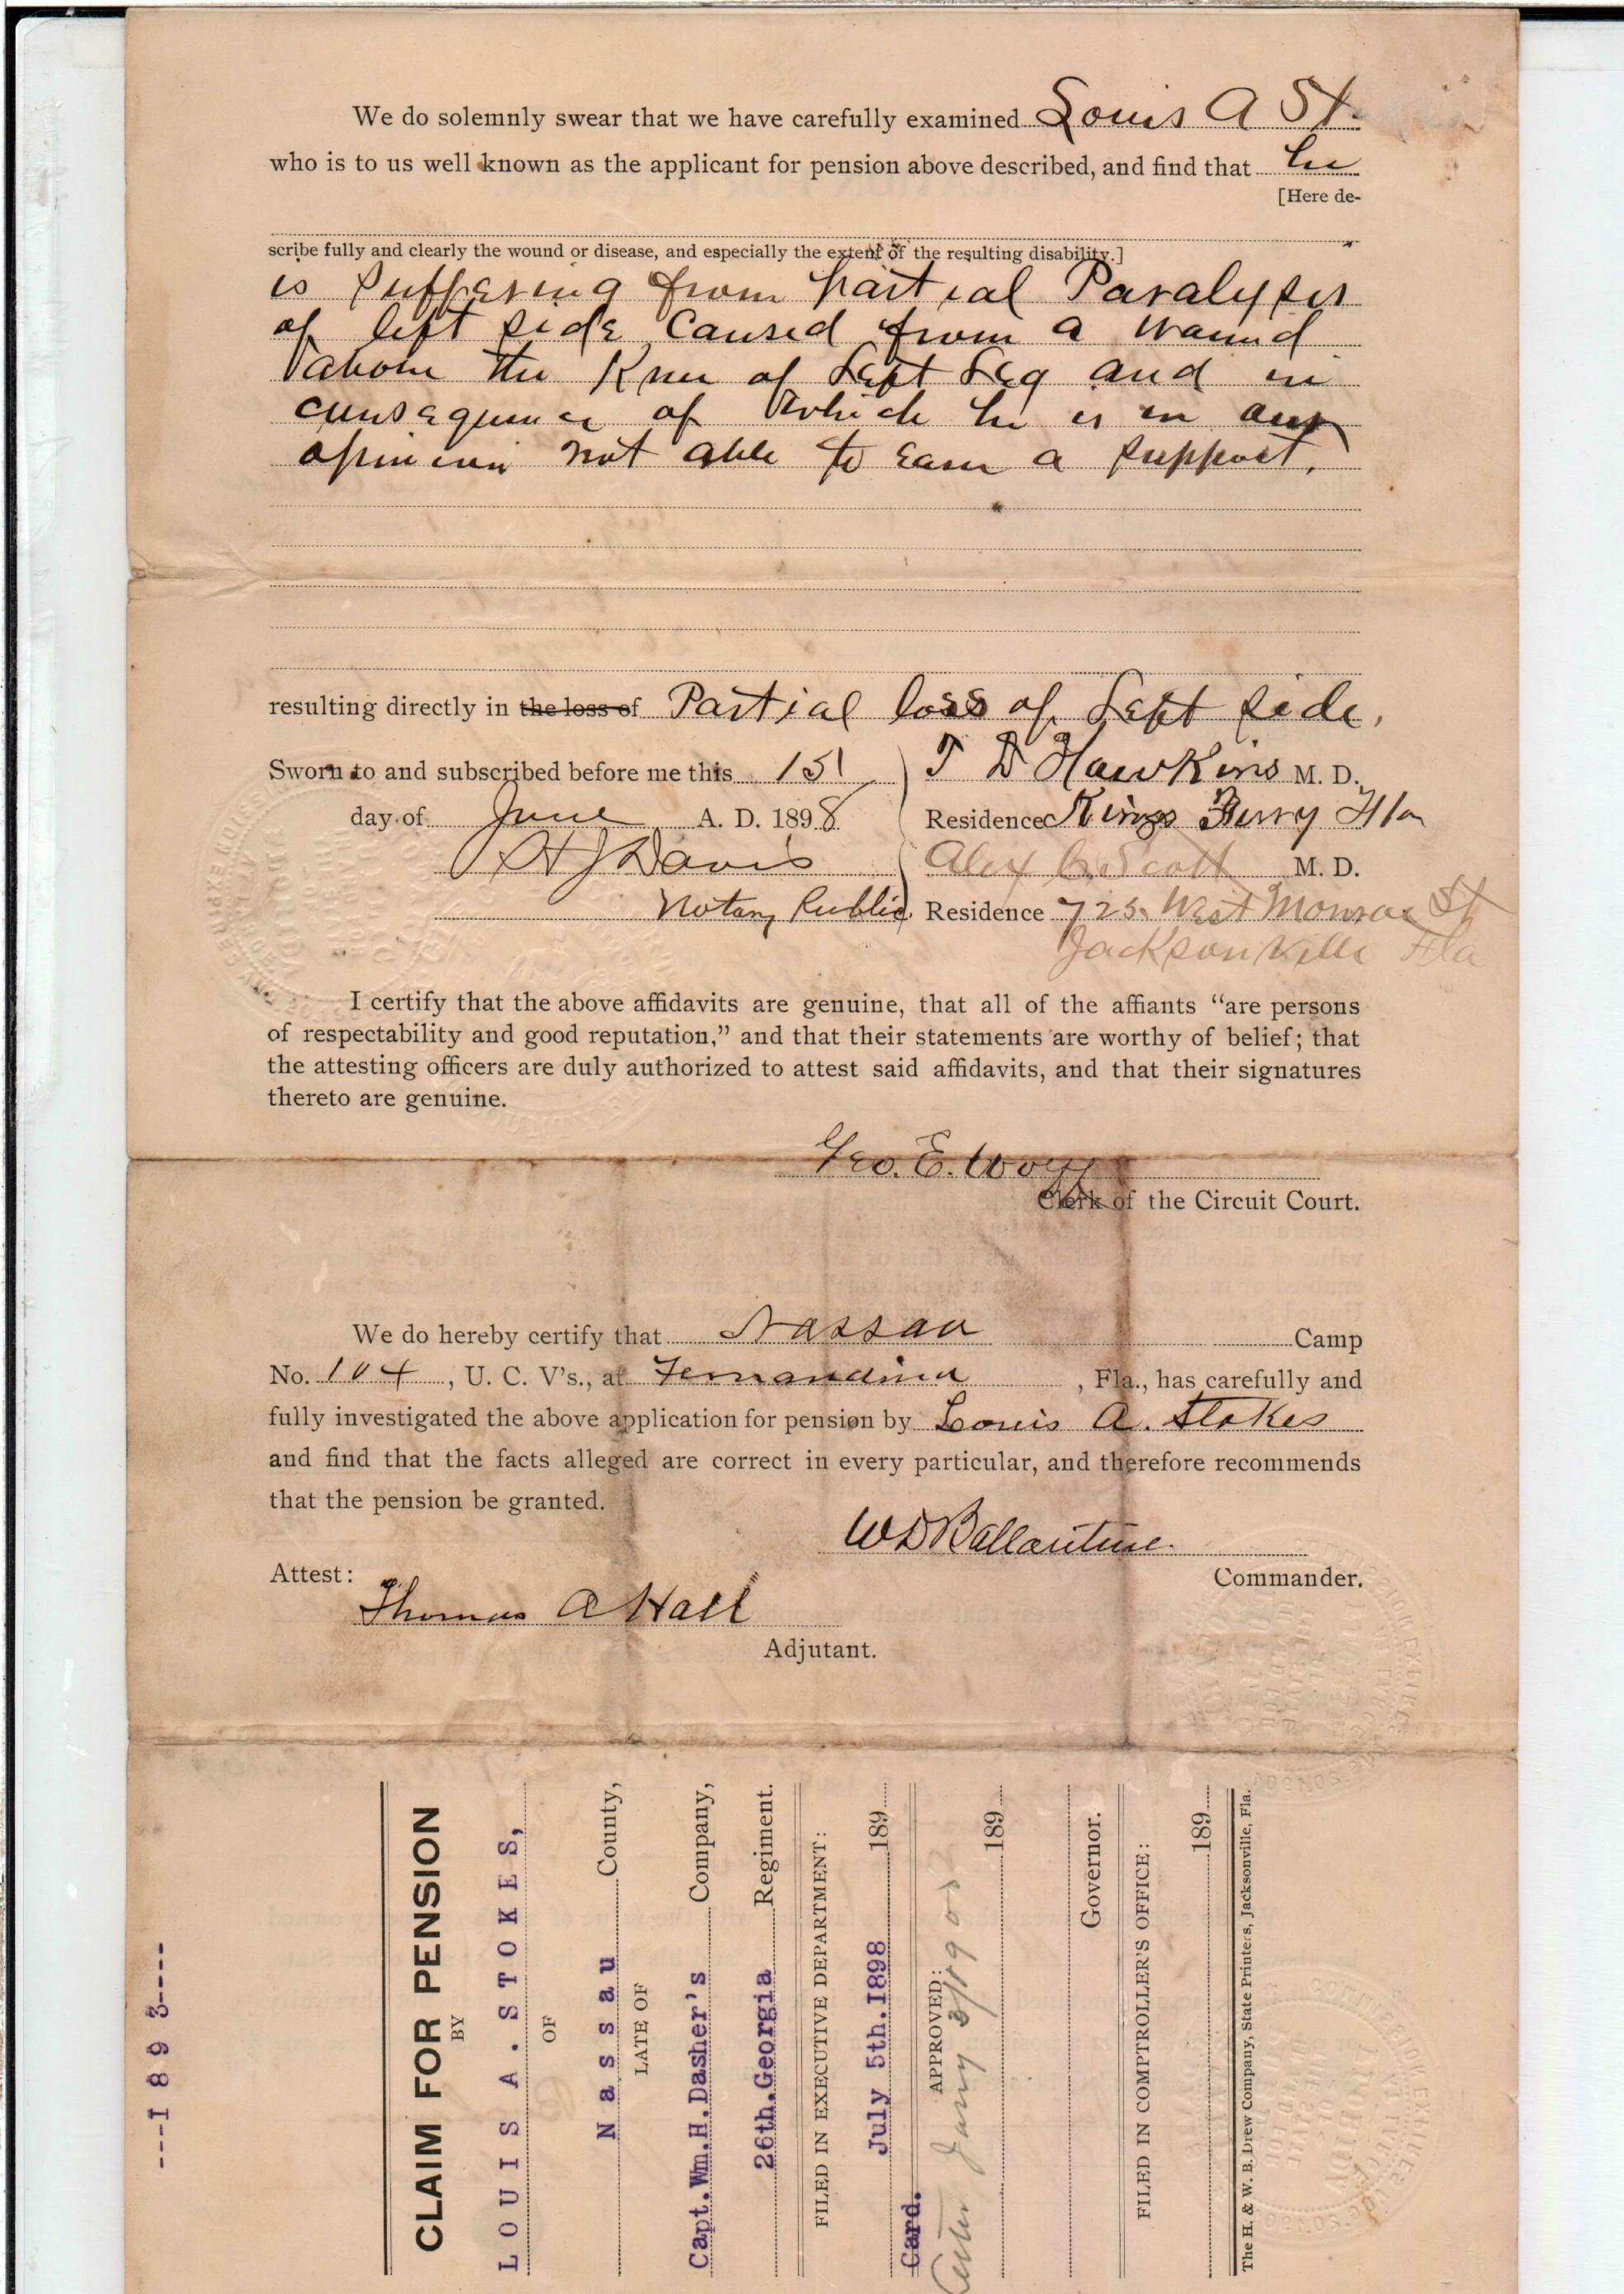 We do solemnly swear that we have carefully examined Louis A St.
who is to us well known as the applicant for pension above described, and find that he
[Here de-
scribe fully and clearly the wound or disease, and especially the extent of the resulting disability.]
is suffering from partial Paralysis
of left side caused from a wound
above the Knee of Left Leg and in
consequence of which he is in our
opinion not able to earn a support.
resulting directly in the loss of Partial loss of Left side.
Sworn to and subscribed before me this 1st
T D Hawkins M. D.
day of June A. D. 1898
Residence Kings Ferry Fla
H J Davis
Alex Scott M. D.
Notary Public
Residence 725 West Monroe St
Jacksonville Fla
I certify that the above affidavits are genuine, that all of the affiants “are persons
of respectability and good reputation,” and that their statements are worthy of belief; that
the attesting officers are duly authorized to attest said affidavits, and that their signatures
thereto are genuine.
Geo. E. Wolff
Clerk of the Circuit Court.
We do hereby certify that Nassau Camp
No. 104, U. C. V's., at Fernandina, Fla., has carefully and
fully investigated the above application for pension by Louis A. Stokes
and find that the facts alleged are correct in every particular, and therefore recommends
that the pension be granted.
W D Ballantine
Attest: Commander.
Thomas A Hall
Adjutant.
---I893----
CLAIM FOR PENSION
BY
LOUIS A. STOKES,
OF
Nassau County,
LATE OF
Capt. Wm. H. Dasher's Company,
26th. Georgia Regiment.
FILED IN EXECUTIVE DEPARTMENT:
July 5th. I898 189
Card.
APPROVED:
189
Governor.
FILED IN COMPTROLLER'S OFFICE:
189
The H. & W. B. Drew Company, State Printers, Jacksonville, Fla.